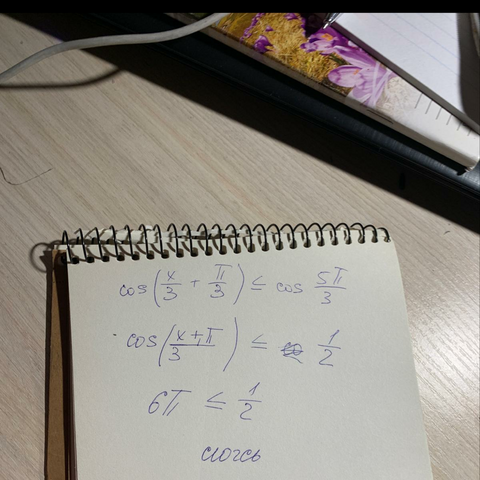 cos(x/3 + π/3) ≤ cos 5π/3
cos(x+π/3) ≤ 1/2
6π ≤ 1/2